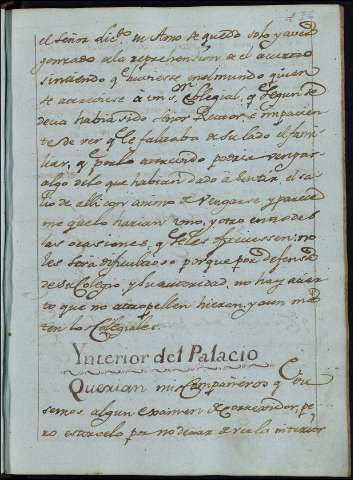 el Señor dic.do mi Amo se quedó solo y aver
gonzado a la reprehension
sintiendo q huviesse en el mundo quien
se atreviese à un s.r Colegial, q segun se
decia habia sido Señor Rector è impacien
te de ver q le faltaba à su lado el fami
liar, q por lo atrevido, podia vengar
algo de lo que habian dado à sentir. el sa
lio de alli con animo de vengarse, y parece
me que lo harian uno, y otro en todas
las ocasiones, q se les ofreciessen: no
les será dificultoso porque por defensa
de su Colegio, y su autoridad, no hay
to que no atropellen hieran, y aun ma
ten los Colegiales.
Ynterior del Palacio
Querian mis Compañeros q
semos algun examen de pe
ro estorvelo por no dexar de ver lo interior